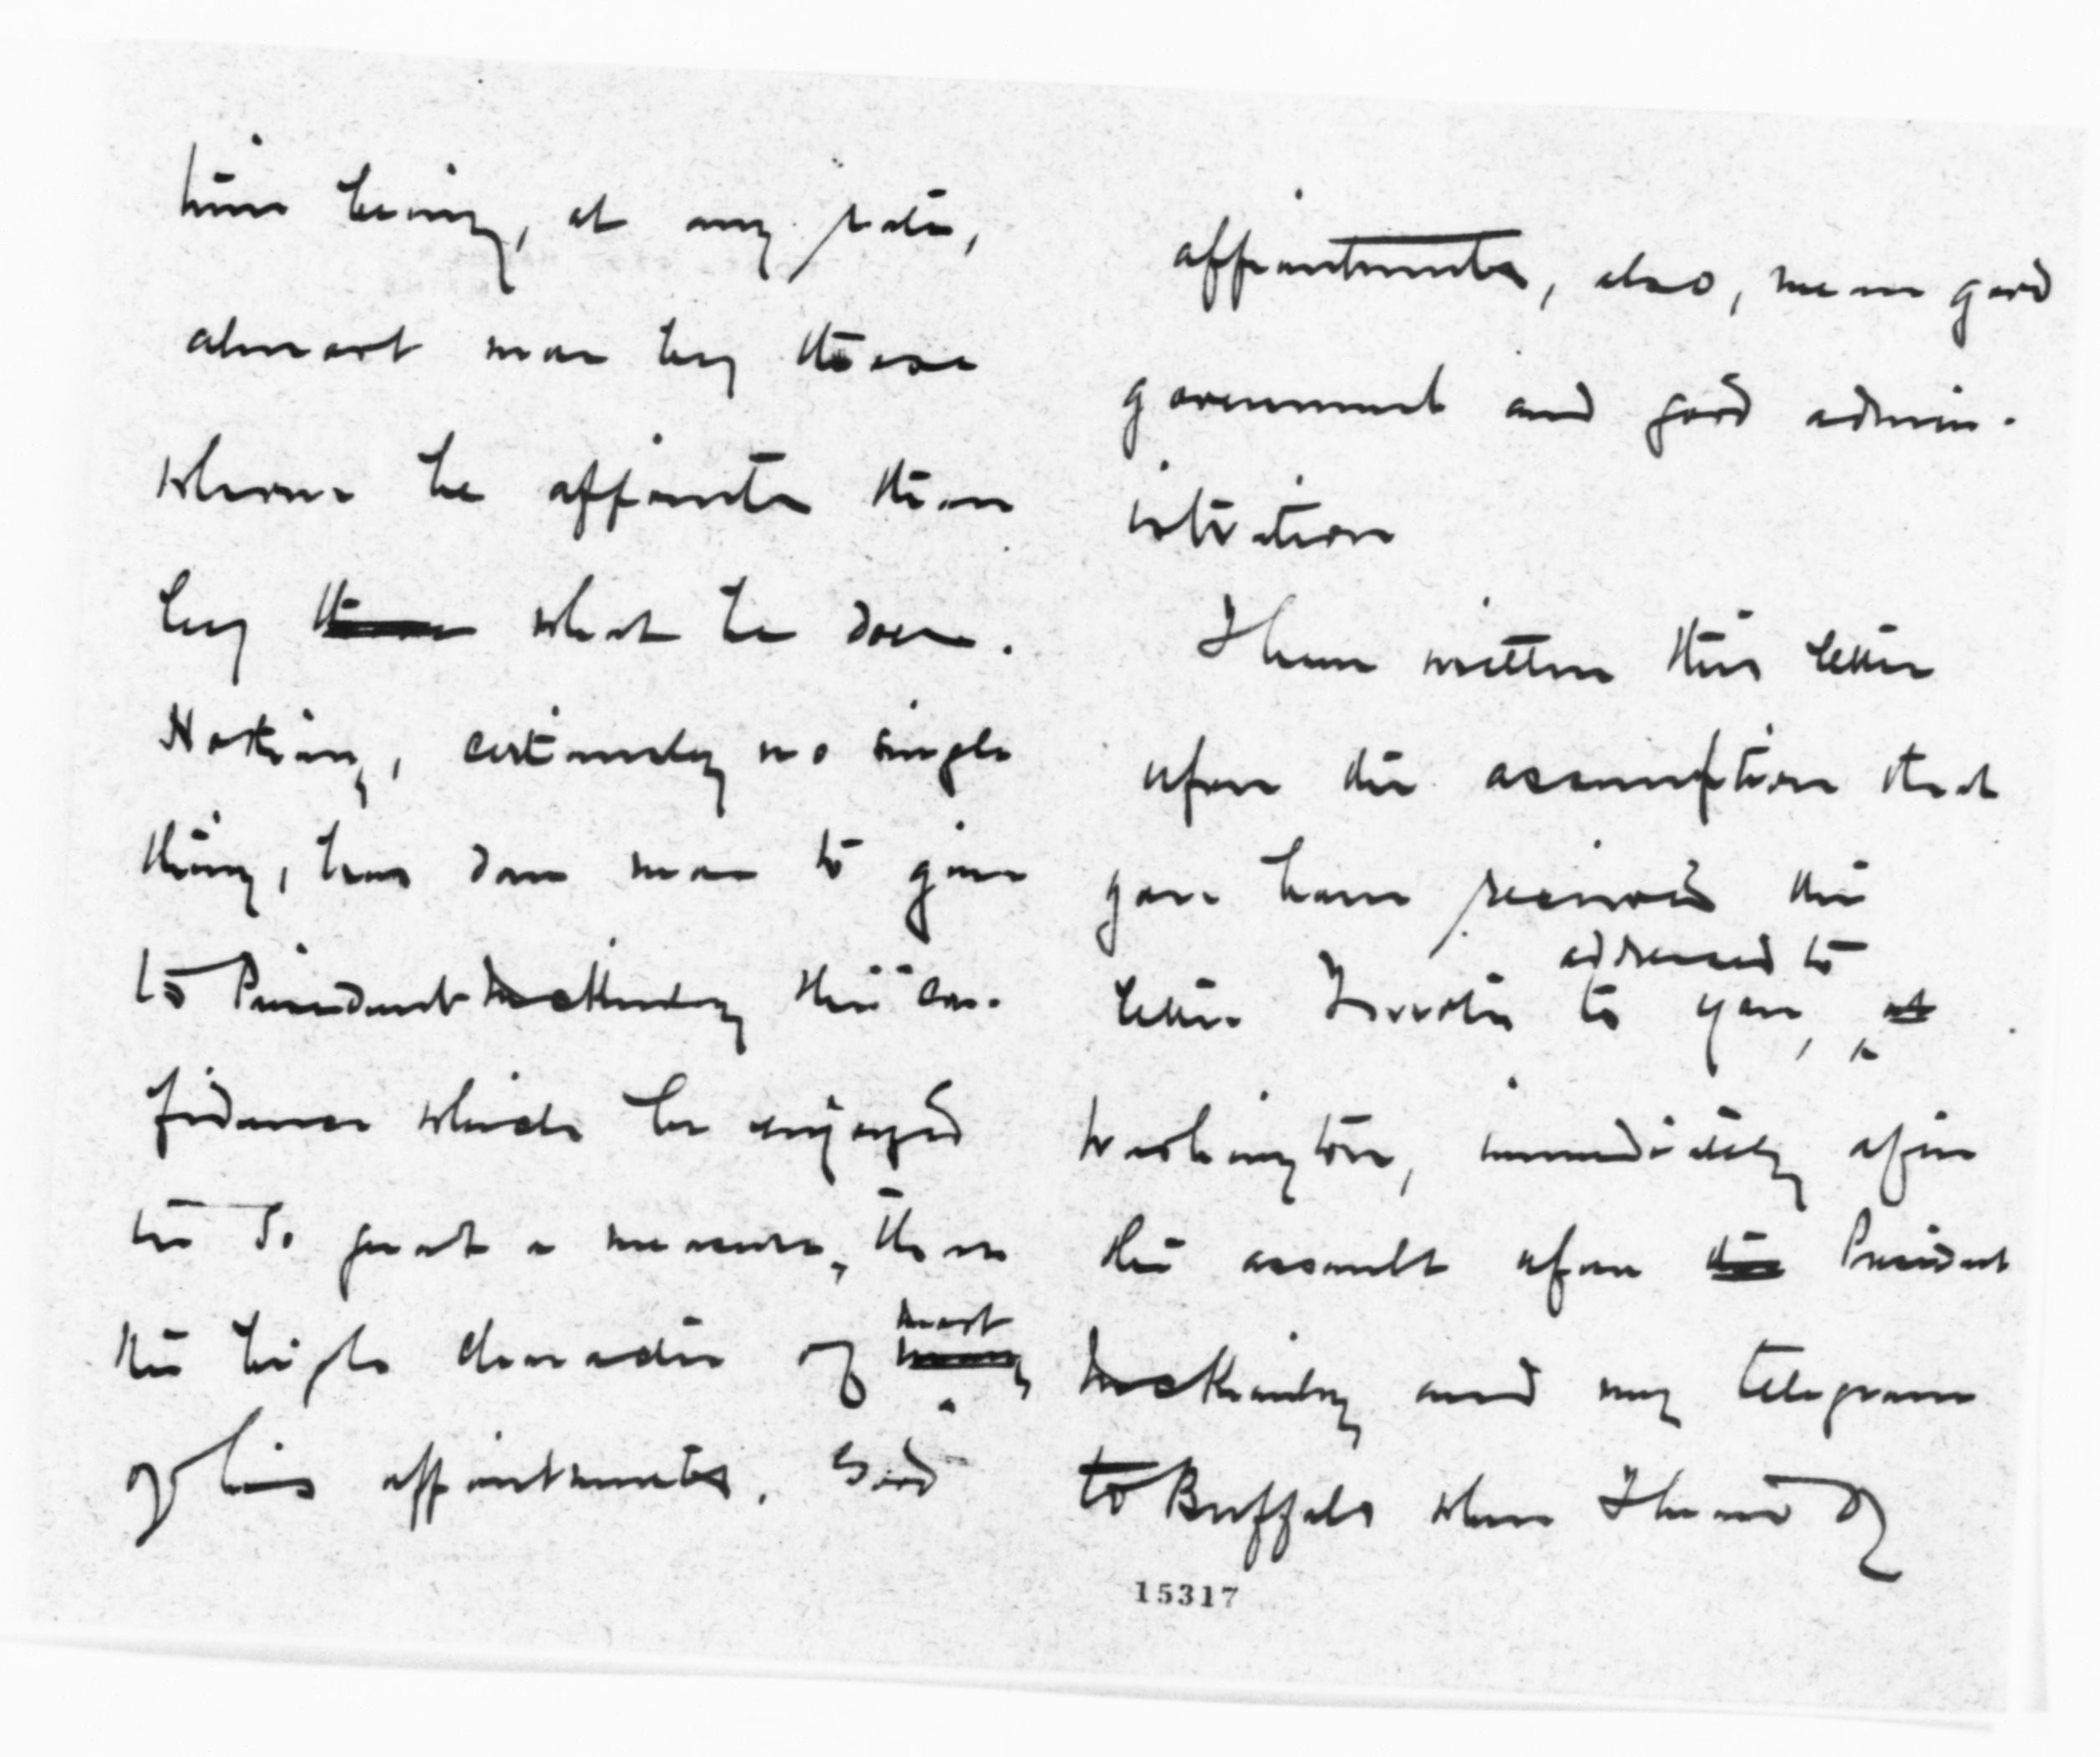 time being, at any rate,
almost more by those
whom he appoints than
by those what he does.
Nothing, certainly no single
thing, has done more to give
to President McKinley the con-
fidence which he enjoyed
in so great a measure, than
the high character of most
many
of his appointments. Good
appointments, also, mean good
government and good admin-
istration
I have written this letter
upon the assumption that
you have received the
addressed to
letter I wrote to you, at
Washington, immediately after
the assault upon the President
McKinley and my telegram
to Buffalo when I heard of
15317